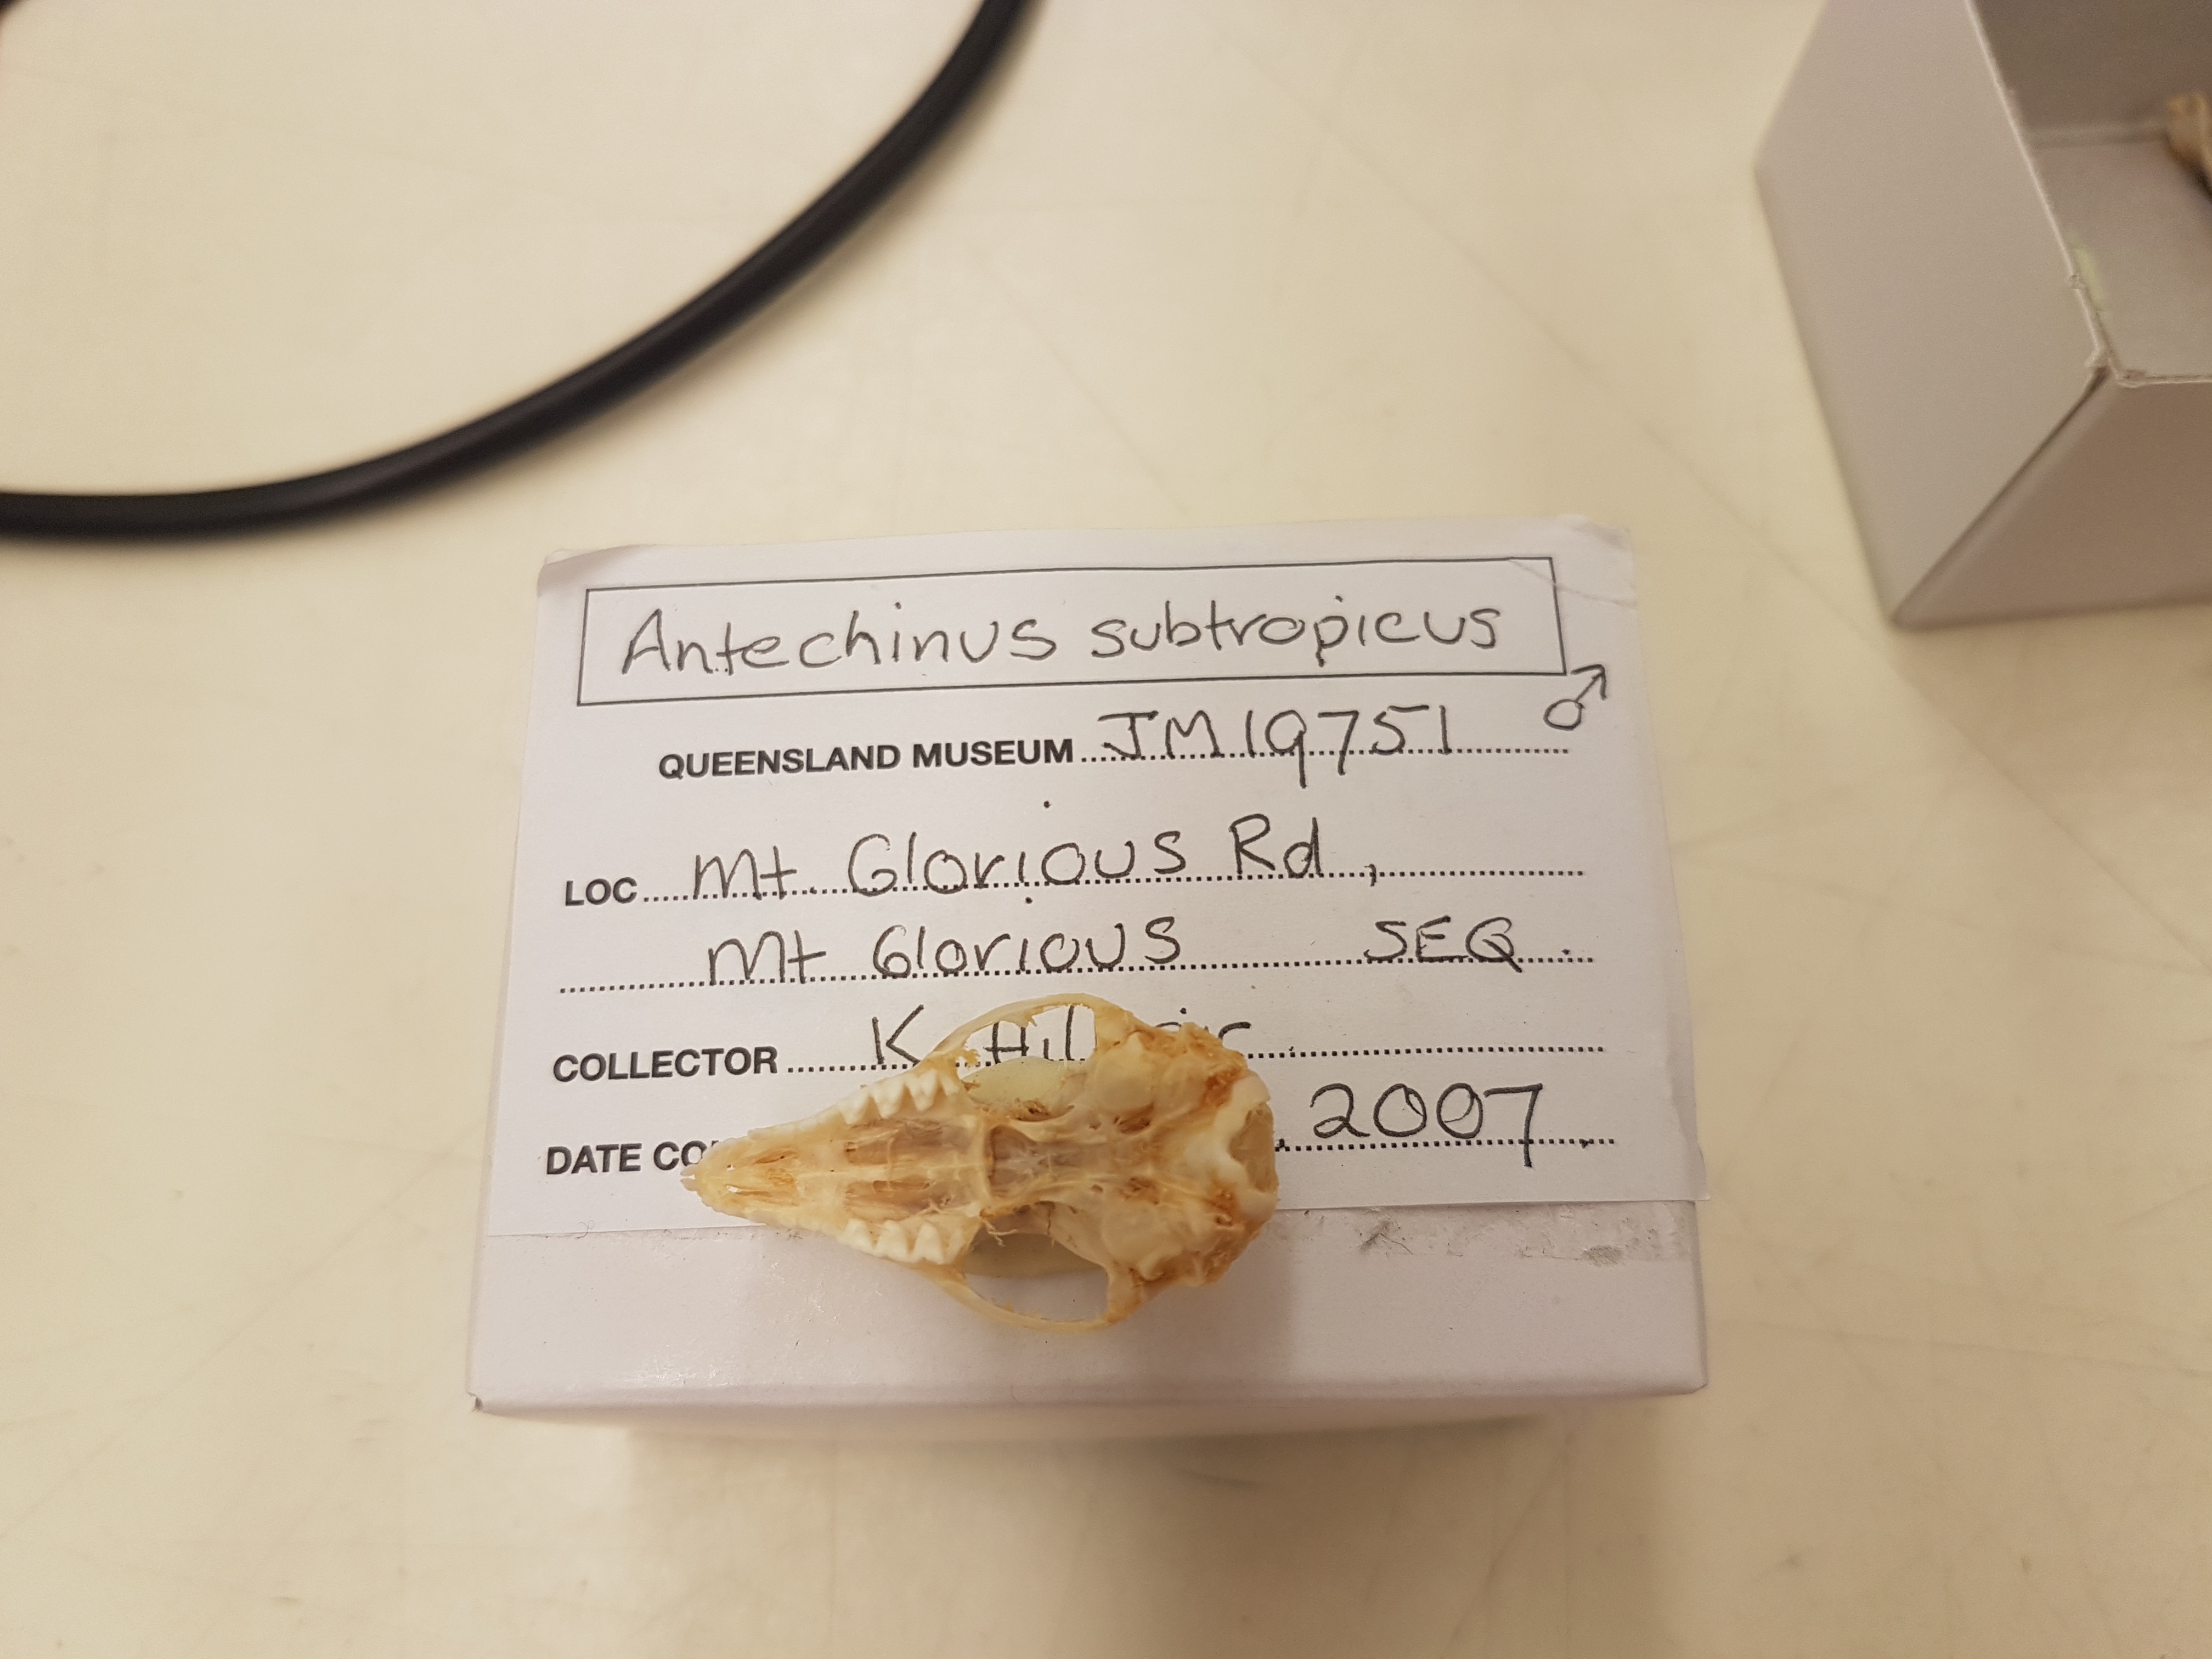 Antechinus subtropicus
QUEENSLAND MUSEUM JM19751 ♂
LOC Mt Glorious Rd,
Mt Glorious SEQ
COLLECTOR K
DATE 2007